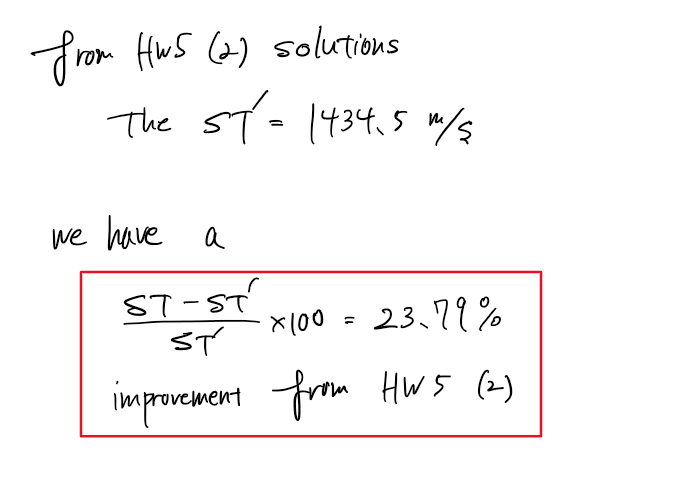 from HW5 (2) solutions
The ST' = 1434.5 m/s
we have a
(ST - ST') / ST' ×100 = 23.79%
improvement from HW 5 (2)